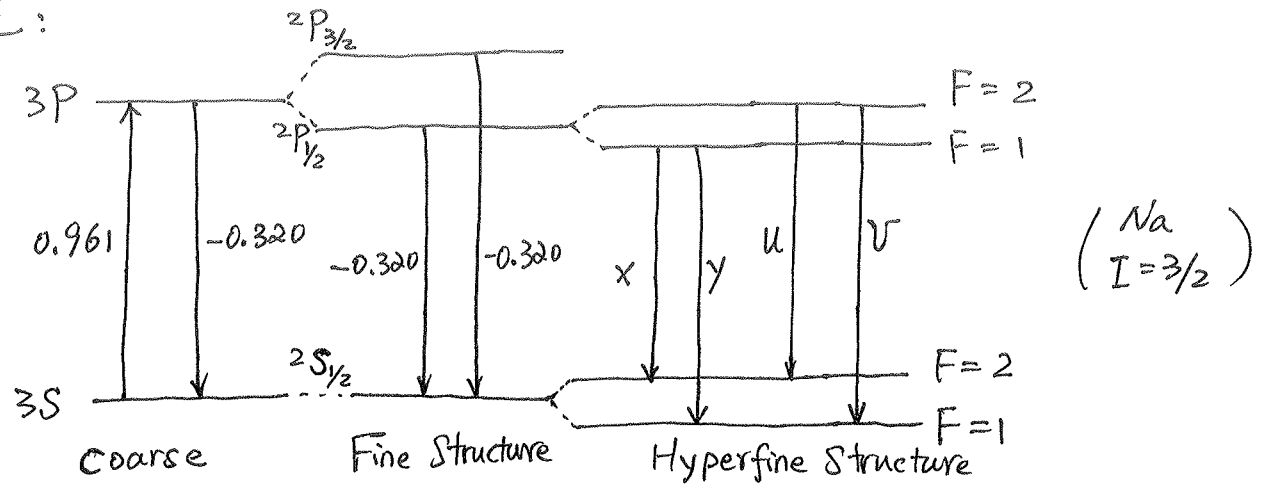 ²P₃/₂
3P
²P₁/₂
F = 2
F = 1
0.961
-0.320
-0.320
-0.320
x
y
u
v
( Na
I = 3/2 )
²S₁/₂
3S
F = 2
F = 1
Coarse
Fine Structure
Hyperfine Structure